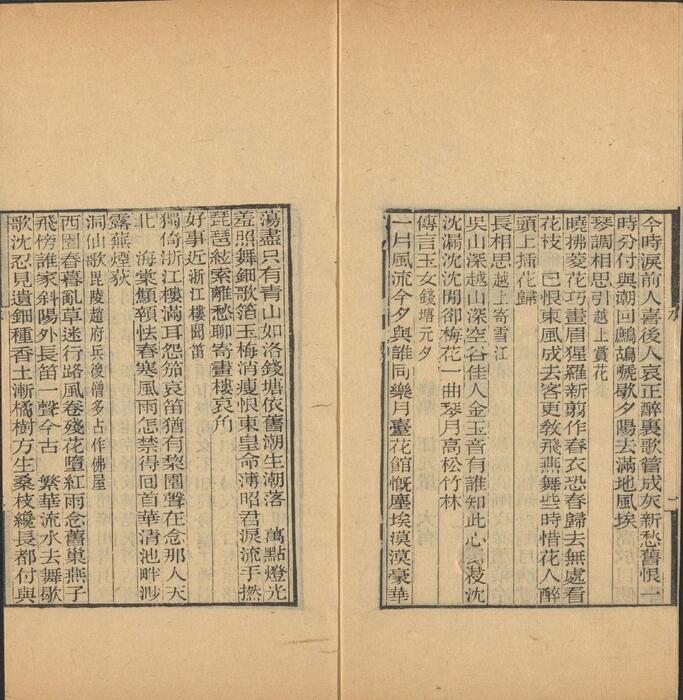 今時淚前人喜後人哀正醉裏歌管成灰新愁舊恨一
時分付與潮回鷓鴣嗁歇夕陽去滿地風埃
琴調相思引越上賞花
曉拂菱花巧畫眉猩羅新剪作春衣恐春歸去無處看
花枝　已恨東風成去客更敎飛燕舞些時惜花人醉
頭上插花歸
長相思越上寄雪江
吳山深越山深空谷佳人金玉音有誰知此心　夜沈
沈漏沈沈閒卻梅花一曲琴月高松竹林
傳言玉女錢塘元夕
一片風流今夕與誰同樂月臺花館慨塵埃漠漠豪華
蕩盡只有青山如洛錢塘依舊潮生潮落　萬點燈光
羞照舞鈿歌箔玉梅消瘦恨東皇命薄昭君淚流手撚
琵琶絃索離愁聊寄畫樓哀角
好事近浙江樓聞笛
獨倚浙江樓滿耳怨笳哀笛猶有棃園聲在念那人天
北　海棠顦顇怯春寒風雨怎禁得回首華清池畔渺
露蕪煙荻
洞仙歌毘陵趙府兵後僧多占作佛屋
西園春暮亂草迷行路風卷殘花墮紅雨念舊巢燕子
飛傍誰家斜陽外長笛一聲今古　繁華流水去舞歇
歌沈忍見遺鈿種香土漸橘樹方生桑枝纔長都付與